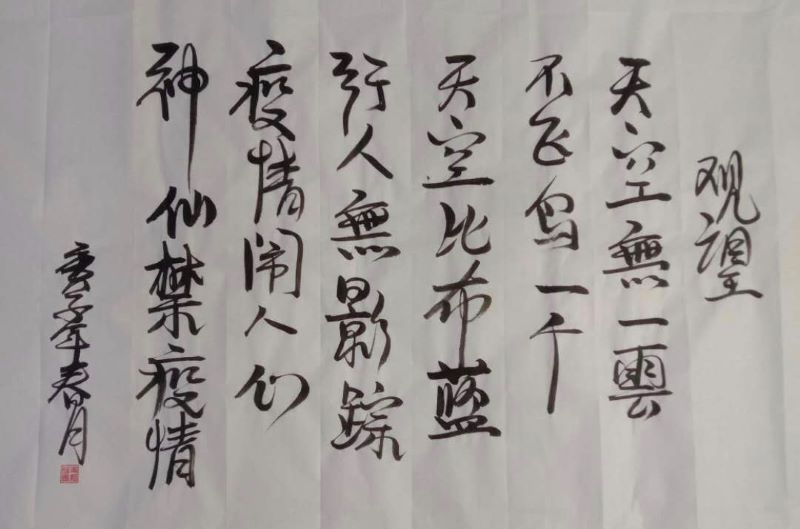 观望
天空無一雲
不飞鸟一千
天空比布蓝
行人無影踪
疫情闹人们
神仙禁疫情
庚子年春月